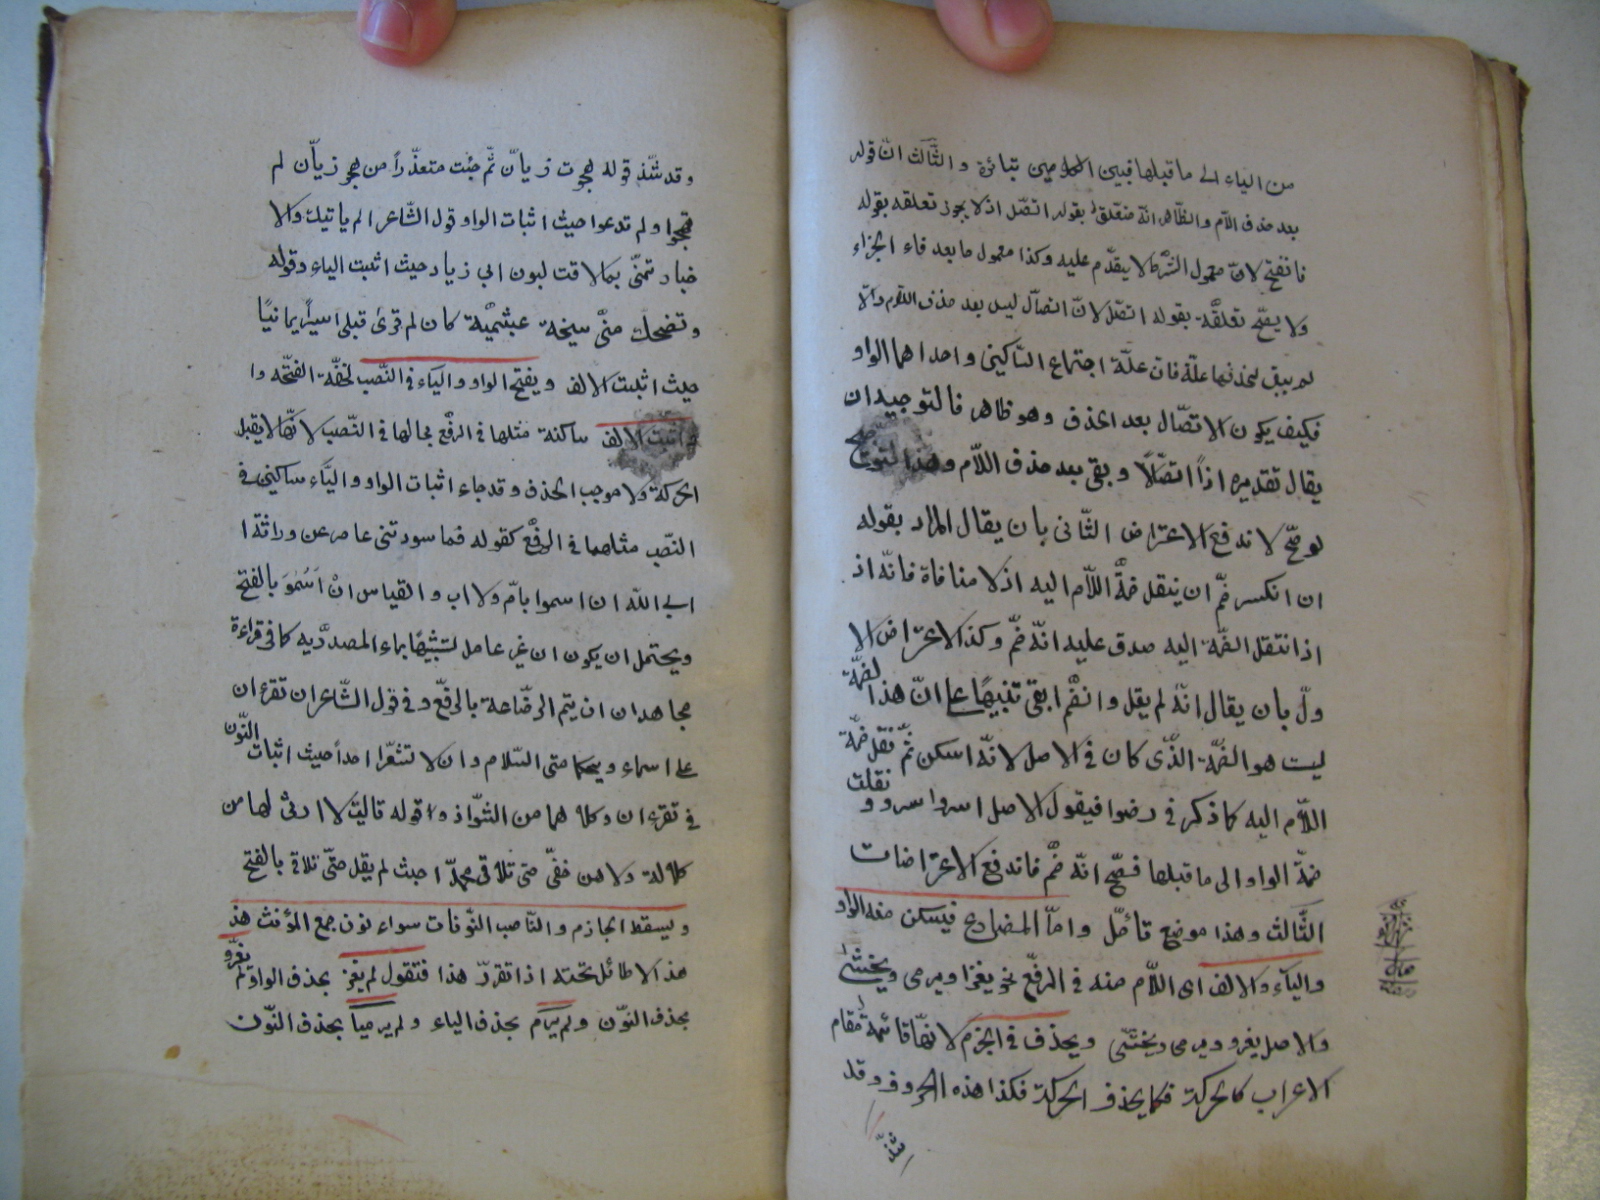 من الياء الى ما قبلها فبين الكلامين تباين والثالث ان قوله
بعد حذف اللام والظاهر انه متعلق بقوله اتصل اذ لا يجوز تعلقه بقوله
فانفتح لان معمول الشرط لا يتقدم عليه وكذا معمول ما بعد فاء الجزاء
ولا يصح تعلقه بقوله اتصل لان اتصال ليس بعد حذف اللام والا
لم يبق لحذفها علة فان علة اجتماع الساكنين واحداهما الواو
فكيف يكون الاتصال بعد الحذف وهو ظاهر فالتوجيه ان
يقال تقديره اذا اتصلا وبقى بعد حذف اللام وهذا التوضيح
لو صح لاندفع الاعتراض الثانى بان يقال المراد بقوله
ان انكسر ضم ان ينقل ضمة اللام اليه اذ لا منافاة فانه اذ
اذا انتقل الضمة اليه صدق عليه انه ضم وكذا الاعتراض الا
ول بان يقال انه لم يقل وانضم ابقى تنبيها على ان هذا الضمة
ليست هو الضمة الذى كان فى الاصل لانه اسكن ثم نقل ضمة
اللام اليه كما ذكر فى رضوا فيقول الاصل اسروا سرووا نقلت
ضمة الواو الى ما قبلها فصح انه ضم فاندفع الاعتراضات
الثالث وهذا موضع تأمل واما المضارع فيسكن منه الواو
والياء والالف اى اللام منه فى الرفع نحو يغزوا ويرمى ويخشى
والاصل يغزو ويرمى ويخشى ويحذف فى الجزم لانها قائمة مقام
الاعراب كالحركة فكما يحذف الحركة فكذا هذه الحروف وقد
شذ
وقد شذ قوله هجوت زبان ثم جئت متعذرا من هجو زبان لم
تهجوا ولم تدعوا حيث اثبات الواو وقول الشاعر الم ياتيك والا
خبار تمنى بما لاقت لبون ابى زياد حيث اثبت الياء وقوله
وتضحك منى سيخة عبشمية كان لم ترى قبلى اسيرا يمانيا
حيث اثبت الالف ويفتح الواو والياء فى النصب لخفة الفتحه وا
واثبت الالف ساكنة مثلها فى الرفع بحالها فى النصب لانها لا يقبل
الحركة ولا موجب الحذف وقد جاء اثبات الواو والياء ساكنين فى
النصب مثلهما فى الرفع كقوله فما سودتنى عامر عن وراثة ا
ابى الله ان اسموا بام ولا اب والقياس ان اسمو بالفتح
ويحتمل ان يكون ان غير عامل لتشبيها بماء المصدرية كما فى قراءة
مجاهد ان ان يتم الرضاعة بالرفع وفى قول الشاعر ان تقرءان
على اسماء ويحكما منى السلام وان لا تشعرا احدا حيث اثبات النون
فى تقرءان وكلاهما من الشواذ واقوله فاليت لا ارثى لها من
كلالة ولا من خفى حتى تلاقى محمدا حيث لم يقل حتى تلاقى بالفتح
ويسقط الجازم والناصب النونات سواء نون جمع المؤنث هذ
هذ الاطائل تحته اذا تقرر هذا فتقول لم يغز بحذف الواو لم يغزو
بحذف النون ولم يرم بحذف الياء ولم يرميا بحذف النون